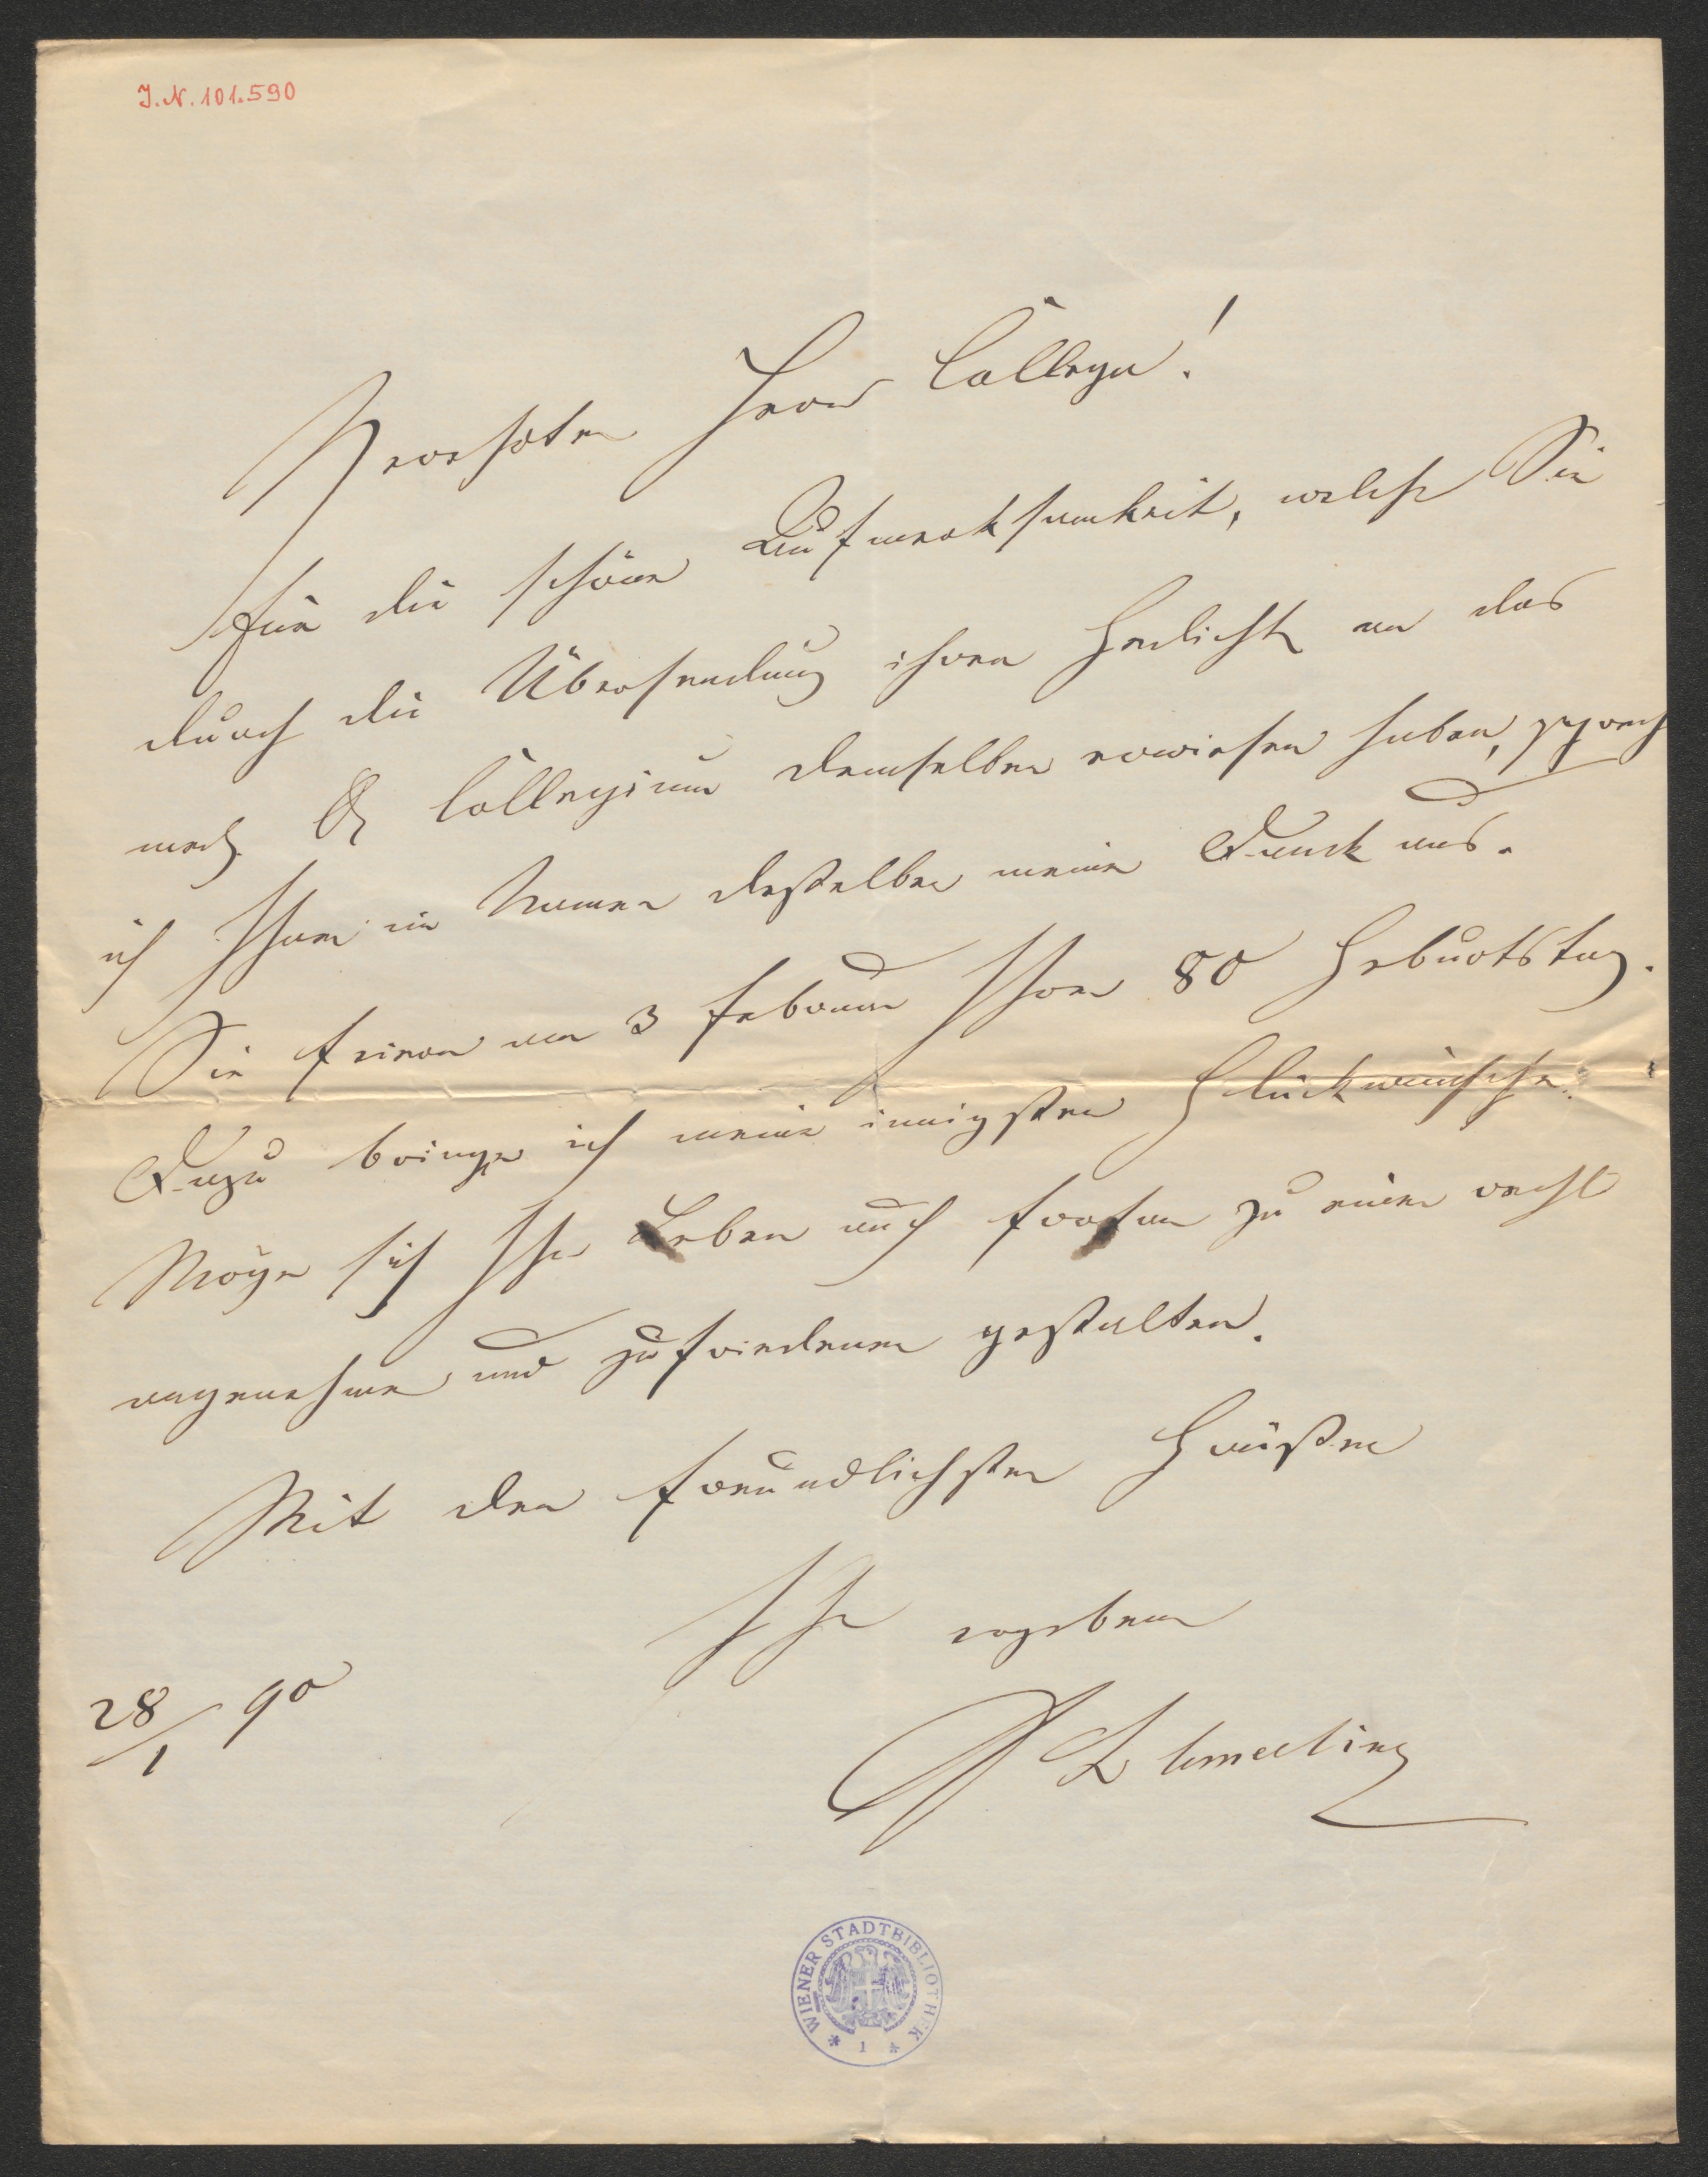 J.N. 101.590
Verehrter Herr College!
Für die schöne Aufmerksamkeit, welche Sie
durch die Übersendung ihrer Gedichte an das
Collegium demselben erwiesen haben, sprech
ich Ihnen im Namen desselben meinen Dank aus.
Sie feiern am 3 Februar Ihren 80 Geburtstag.
Dazu bringe ich meine innigsten Glückwünsche.
Möge sich Ihr Leben auch fortan zu einem recht
angenehmen und zufriedenen gestalten.
Mit den freundlichsten Grüßen
Ihr ergebener
28/1 90
Schmerling
WIENER STADTBIBLIOTHEK
* 1 *